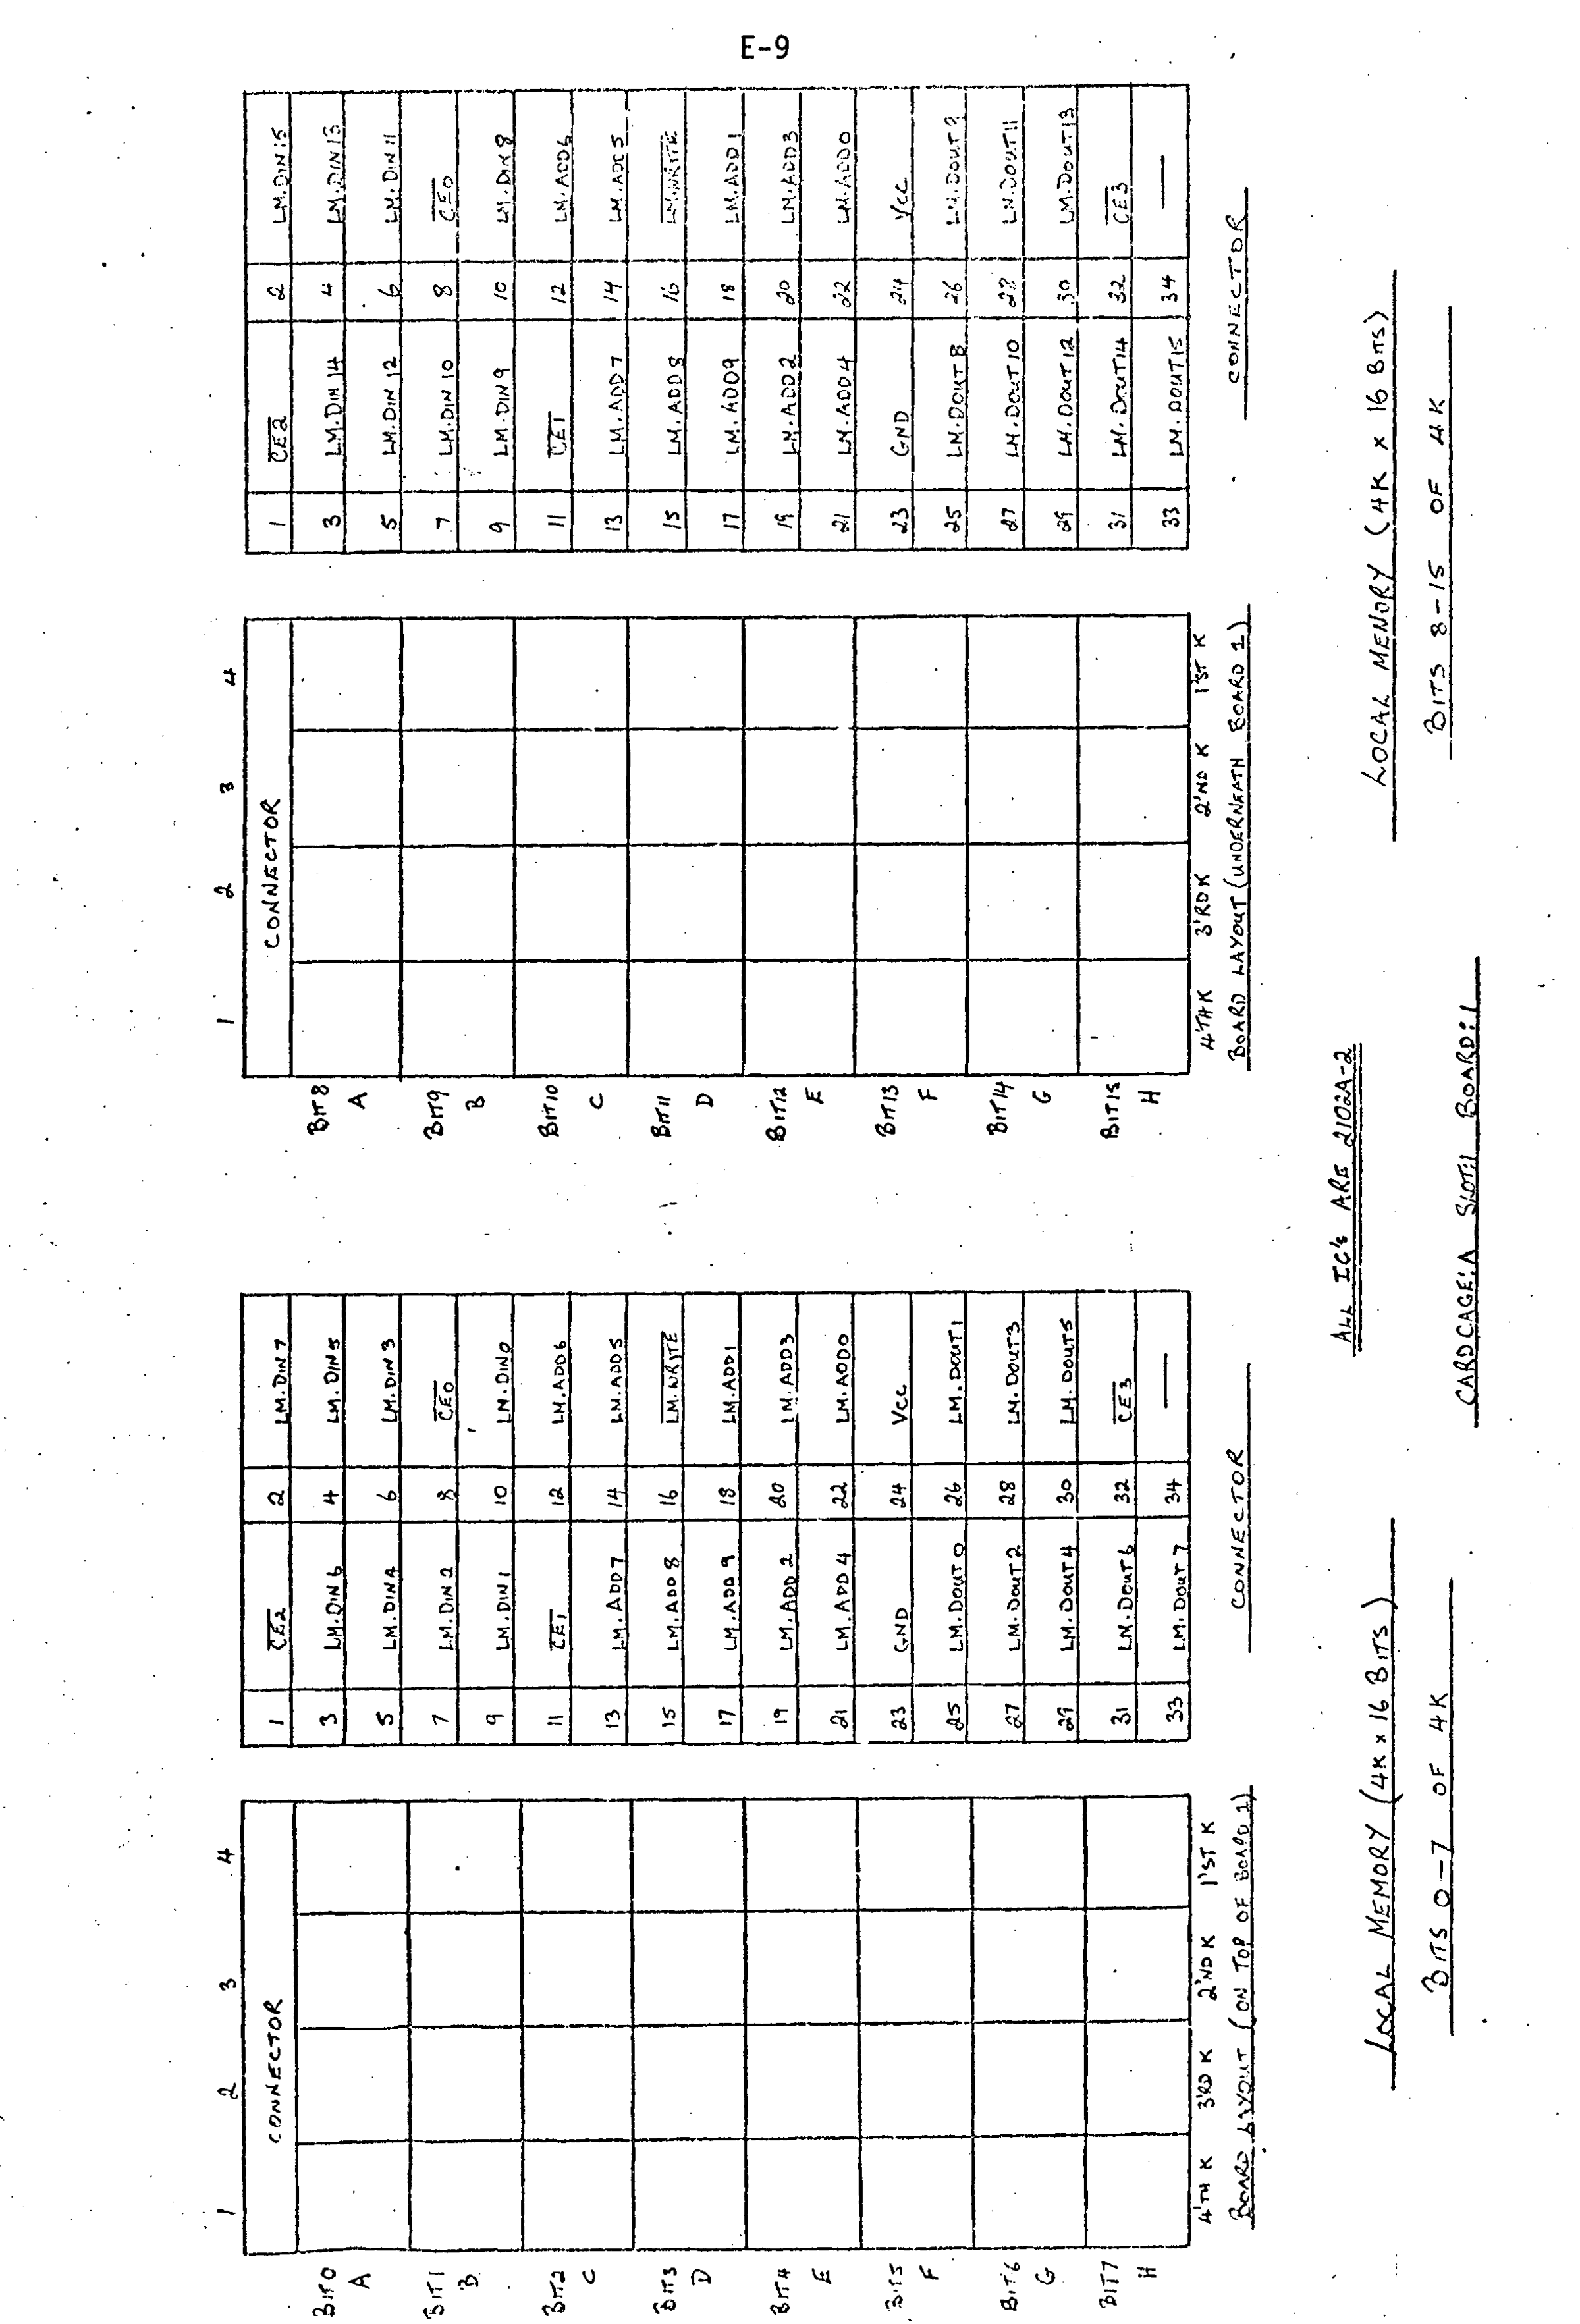 E-9
1 2 3 4
CONNECTOR
BIT0 A
BIT1 B
BIT2 C
BIT3 D
BIT4 E
BIT5 F
BIT6 G
BIT7 H
4'TH K 3'RD K 2'ND K 1'ST K
BOARD LAYOUT (ON TOP OF BOARD 2)
1 CE2 2 LM.DIN7
3 LM.DIN6 4 LM.DIN5
5 LM.DIN4 6 LM.DIN3
7 LM.DIN2 8 CE0
9 LM.DIN1 10 LM.DIN0
11 CE1 12 LM.ADD6
13 LM.ADD7 14 LM.ADD5
15 LM.ADD8 16 LM.WRITE
17 LM.ADD9 18 LM.ADD1
19 LM.ADD2 20 LM.ADD3
21 LM.ADD4 22 LM.ADD0
23 GND 24 Vcc
25 LM.DOUT0 26 LM.DOUT1
27 LM.DOUT2 28 LM.DOUT3
29 LM.DOUT4 30 LM.DOUT5
31 LM.DOUT6 32 CE3
33 LM.DOUT7 34 —
CONNECTOR
LOCAL MEMORY (4K x 16 BITS)
BITS 0-7 OF 4K
1 2 3 4
CONNECTOR
BIT8 A
BIT9 B
BIT10 C
BIT11 D
BIT12 E
BIT13 F
BIT14 G
BIT15 H
4'TH K 3'RD K 2'ND K 1'ST K
BOARD LAYOUT (UNDERNEATH BOARD 1)
1 CE2 2 LM.DIN15
3 LM.DIN14 4 LM.DIN13
5 LM.DIN12 6 LM.DIN11
7 LM.DIN10 8 CE0
9 LM.DIN9 10 LM.DIN8
11 CE1 12 LM.ADD6
13 LM.ADD7 14 LM.ADD5
15 LM.ADD8 16 LM.WRITE
17 LM.ADD9 18 LM.ADD1
19 LM.ADD2 20 LM.ADD3
21 LM.ADD4 22 LM.ADD0
23 GND 24 Vcc
25 LM.DOUT8 26 LM.DOUT9
27 LM.DOUT10 28 LM.DOUT11
29 LM.DOUT12 30 LM.DOUT13
31 LM.DOUT14 32 CE3
33 LM.DOUT15 34 —
CONNECTOR
LOCAL MEMORY (4K x 16 BITS)
BITS 8-15 OF 4K
ALL IC's ARE 2102A-2
CARDCAGE:A SLOT:1 BOARD:1